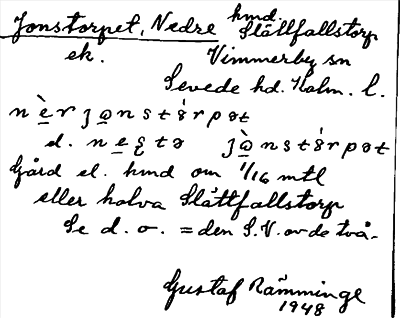 Jonstorpet, Nedre hmd. Slättfallstorp
ek. Vimmerby sn
Sevede hd. Kalm. l.
nèr jɷnstórpət
d. neʂtə jɷ̀nstórpət
Gård el. hmd om 1/16 mtl
eller halva Slättfallstorp
Se d. o. = den S.V. av de två.
Gustaf Rämminge
1948